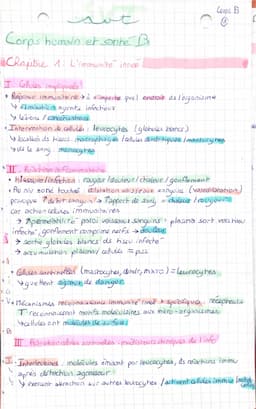 Corps B
svt
Corps humain et santé B
Chapitre 1 : L'immunité innée
I - Cellules impliquées
• Réponse immunitaire → à n'importe quel endroit de l'organisme
↳ élimination agents infectieux
↳ lésions / cancérisation
• Intervention de cellules : leucocytes (globules blancs)
↳ localisés ds tissus : macrophages / cellules dendritiques / mastocytes
↳ ds le sang : monocytes
II - Réaction inflammatoire
• blessure/infection : rougeur / douleur / chaleur / gonflement
• Au niv zone touchée : dilatation vaisseaux sanguins (vasodilatation)
provoque ↑ débit sanguin → ↑ apport de sang = chaleur / rougeurs
car action cellules immunitaires
↳ ↑ perméabilité parois vaisseaux sanguins : plasma sort vers tissu
infecté, gonflement comprime nerfs → douleur
↳ sortie globules blancs ds tissu infecté
↳ accumulation plasma / cellules = pus
• Cellules sentinelles (mastocytes, dendr, macro) = leucocytes
↳ guettent signaux de danger
• Mécanismes reconnaissance immunité innée + spécifiques, récepteurs
T reconnaissent motifs moléculaires aux micro-organismes
↳ cellules ont molécules de surface
III -
I - Interleukines : molécules émises par leucocytes, ds réactions immu
après détection agresseur
↳ exercent attraction sur autres leucocytes / activent cellules immu